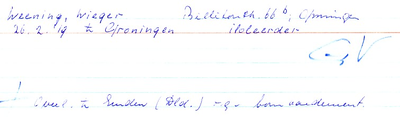 Weening, Wieger
Billitonstr. 66b, Groningen
26.2.19 te Groningen
isoleerder
overl. te Emden (Dld.) t.g.v. bombardement.